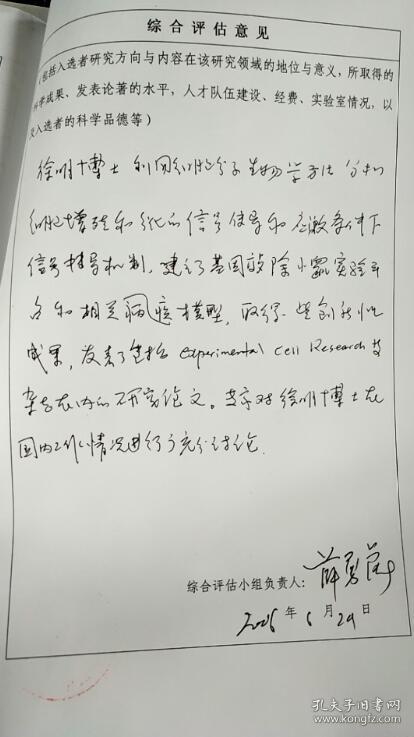 综合评估意见
（包括入选者研究方向与内容在该研究领域的地位与意义，所取得的
科学成果、发表论著的水平，人才队伍建设、经费、实验室情况，以
及入选者的科学品德等）
徐明博士利用细胞分子生物学方法分析
细胞增殖和分化的信号传导和应激条件下
信号转导机制，建立了基因敲除小鼠实验平
台和相关病疾模型，取得一些创新性
成果，发表了包括 Experimental Cell Research 等
杂志在内的研究论文。专家对徐明博士在
国内工作情况进行了充分讨论．
综合评估小组负责人：薛勇
年 6 月 29 日
孔夫子旧书网